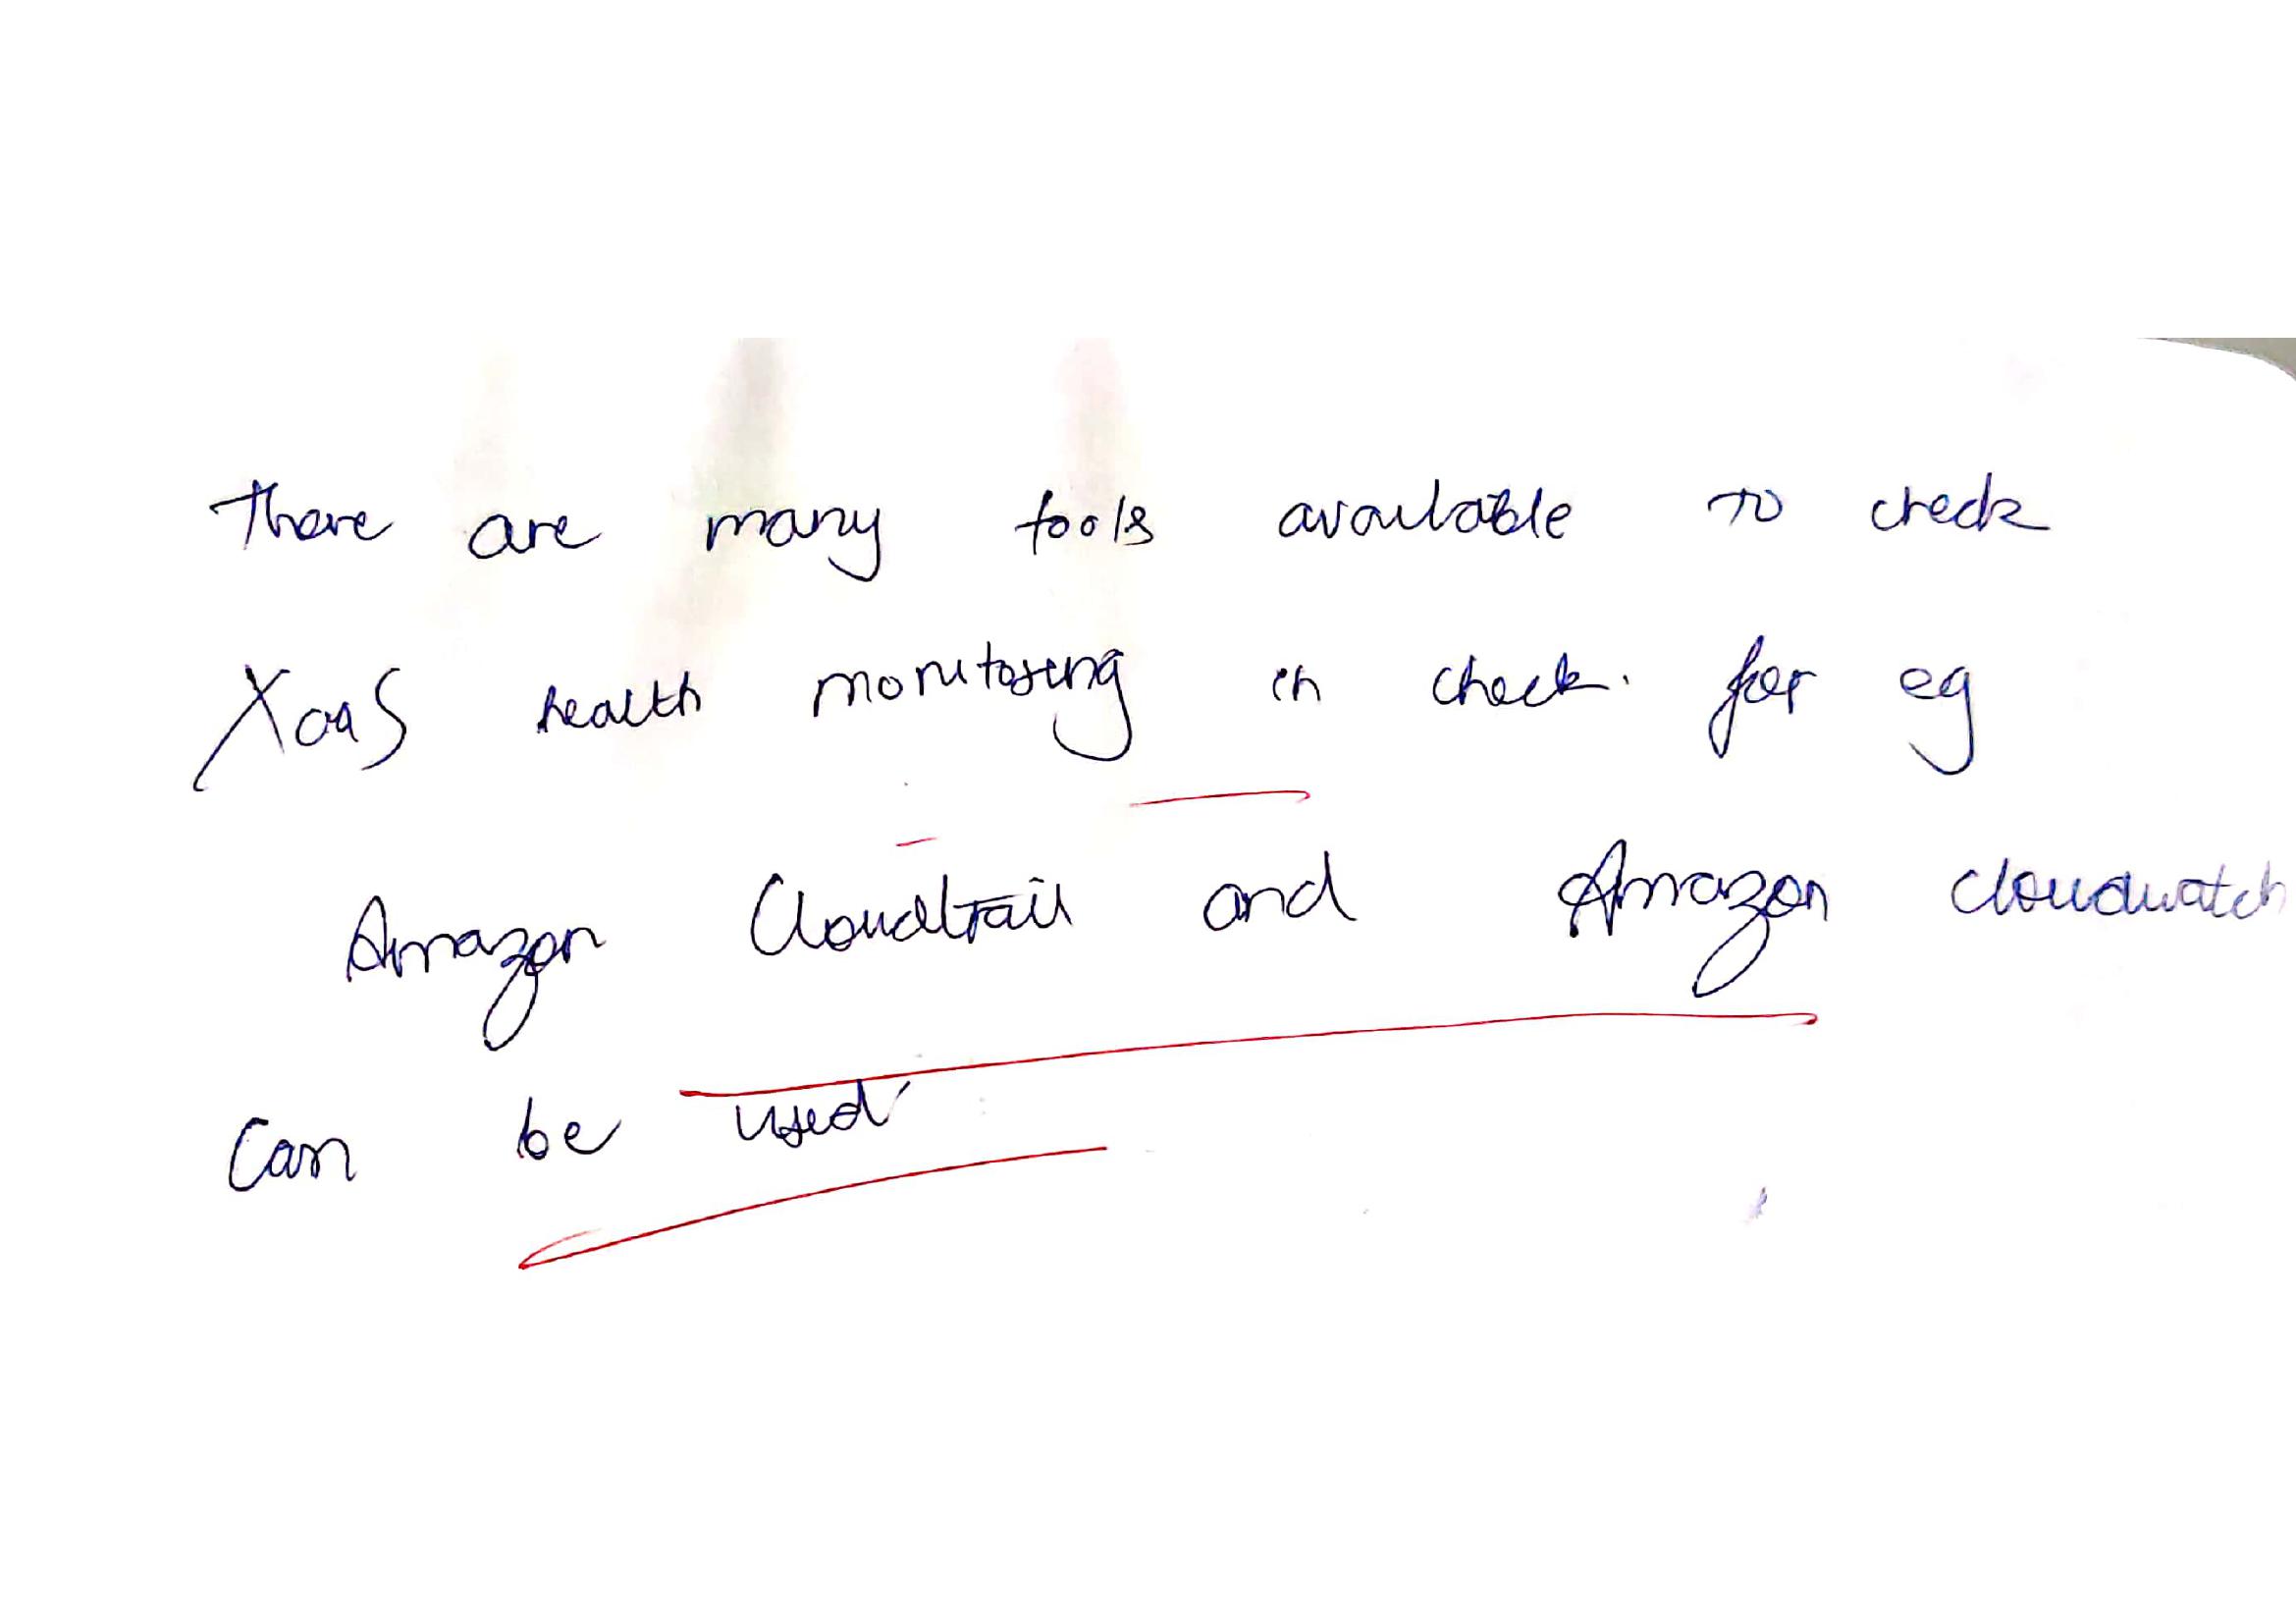 There are many tools available to check
XaaS health monitoring in check. for eg
Amazon Cloudtrail and Amazon cloudwatch
Can be used